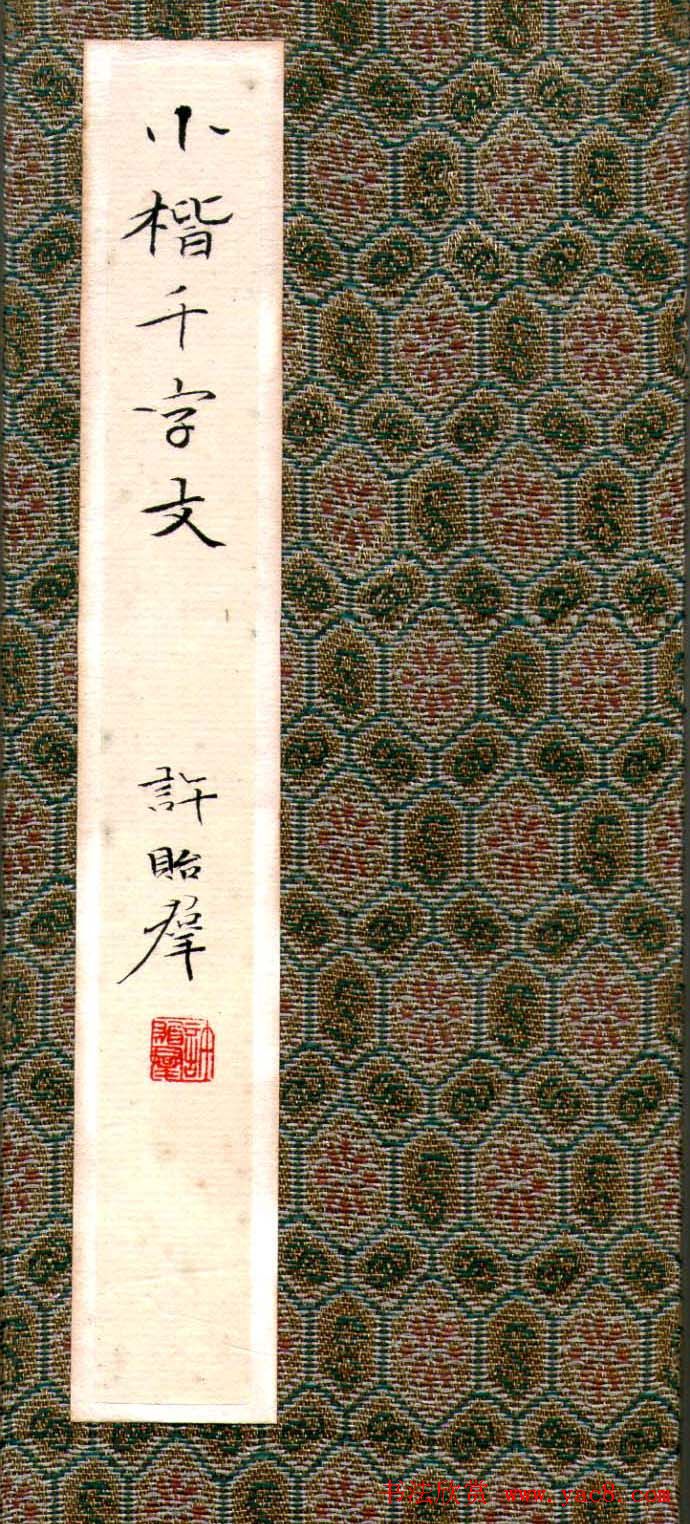 小楷千字文
許貽羣
許貽羣
书法欣赏 www.yac8.com